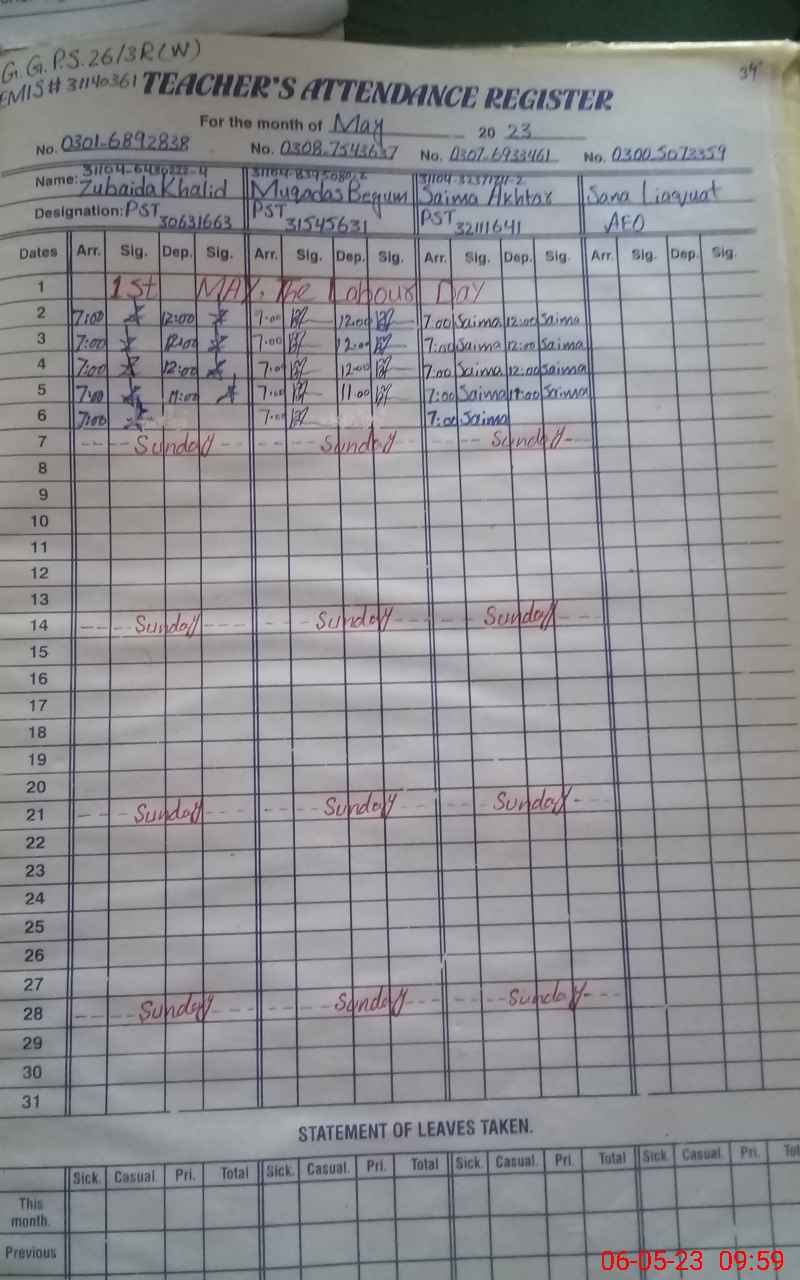 34
G.G.P.S. 26/3R(W)
EMIS# 31140361 TEACHER'S ATTENDANCE REGISTER
For the month of May 2023
No. 0301-6892838 No. 0308-7543637 No. 0307-6933461 No. 0300-5073359
Name: Zubaida Khalid Muqadas Begum Saima Akhtar Sana Liaquat
Designation: PST 30631663 PST 31545631 PST 32111641 AEO
Dates Arr. Sig. Dep. Sig. Arr. Sig. Dep. Sig. Arr. Sig. Dep. Sig. Arr. Sig. Dep. Sig.
1 1st MAY, The Labour Day
2 7:00 12:00 7:00 12:00 7:00 Saima 12:00 Saima
3 7:00 12:00 7:00 12:00 7:00 Saima 12:00 Saima
4 7:00 12:00 7:00 12:00 7:00 Saima 12:00 Saima
5 7:00 11:00 7:00 11:00 7:00 Saima 11:00 Saima
6 7:00 7:00 7:00 Saima
7 Sunday Sunday Sunday
8
9
10
11
12
13
14 Sunday Sunday Sunday
15
16
17
18
19
20
21 Sunday Sunday Sunday
22
23
24
25
26
27
28 Sunday Sunday Sunday
29
30
31
STATEMENT OF LEAVES TAKEN.
Sick. Casual. Pri. Total Sick. Casual. Pri. Total Sick. Casual. Pri. Total Sick. Casual. Pri.
This
month.
Previous
06-05-23 09:59